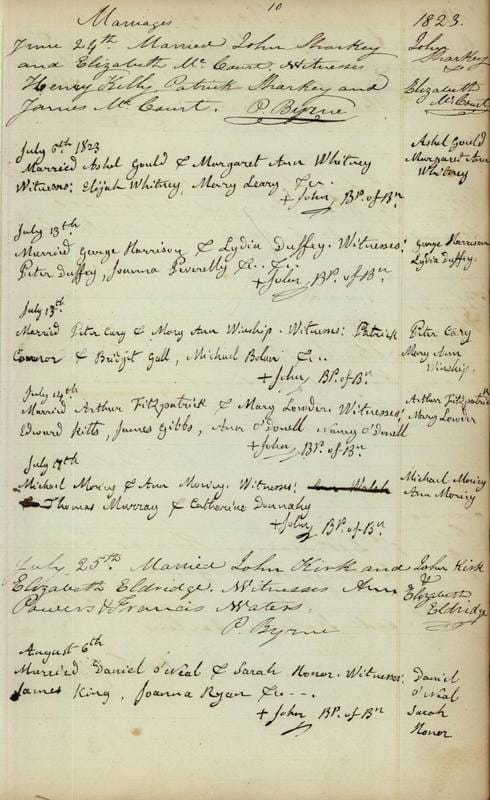 10
Marriages
1823.
June 24th. Married John Sharkey
and Elizabeth Mc Court. Witnesses
Henry Kelly, Patrick Sharkey and
James Mc Court. P. Byrne
John
Sharkey
Elizabeth
Mc Court
July 6th 1823
Married Ashel Gould & Margaret Ann Whitney
Witnesses: Elijah Whitney, Mary Leary &c.
+ John, BP. of Bn
Ashel Gould
Margaret Ann
Whitney
July 13th
Married George Harrison & Lydia Duffey. Witnesses:
Peter Duffey, Joanna Peverelly &c..
+ John, BP. of Bn
George Harrison
Lydia Duffey.
July 13th
Married Peter Cary & Mary Ann Winship. Witnesses: Patrick
Connor & Bridget Gall, Michael Bolan &c..
+ John, BP. of Bn.
Peter Cary
Mary Ann
Winship.
July 14th
Married Arthur Fitzpatrick & Mary Lowder. Witnesses:
Edward Kitts, James Gibbs, Ann O'Donell Nancy O'Donell
+ John, BP. of Bn.
Arthur Fitzpatrick
Mary Lowder
July 17th
Michael Moriny & Ann Moriny. Witnesses: Ann Walsh
& Thomas Murray & Catharine Donnahy
+ John, BP. of Bn.
Michael Moriny
Ann Moriny
July 25th Married John Kirk and
Elizabeth Eldridge. Witnesses Ann
Powers & Francis Waters.
P. Byrne
John Kirk
&
Elizabeth
Eldridge
August 6th
Married Daniel O'Neal & Sarah Honor. Witnesses:
James King, Joanna Ryan &c---.
+ John, BP. of Bn
Daniel
O'Neal
Sarah
Honor